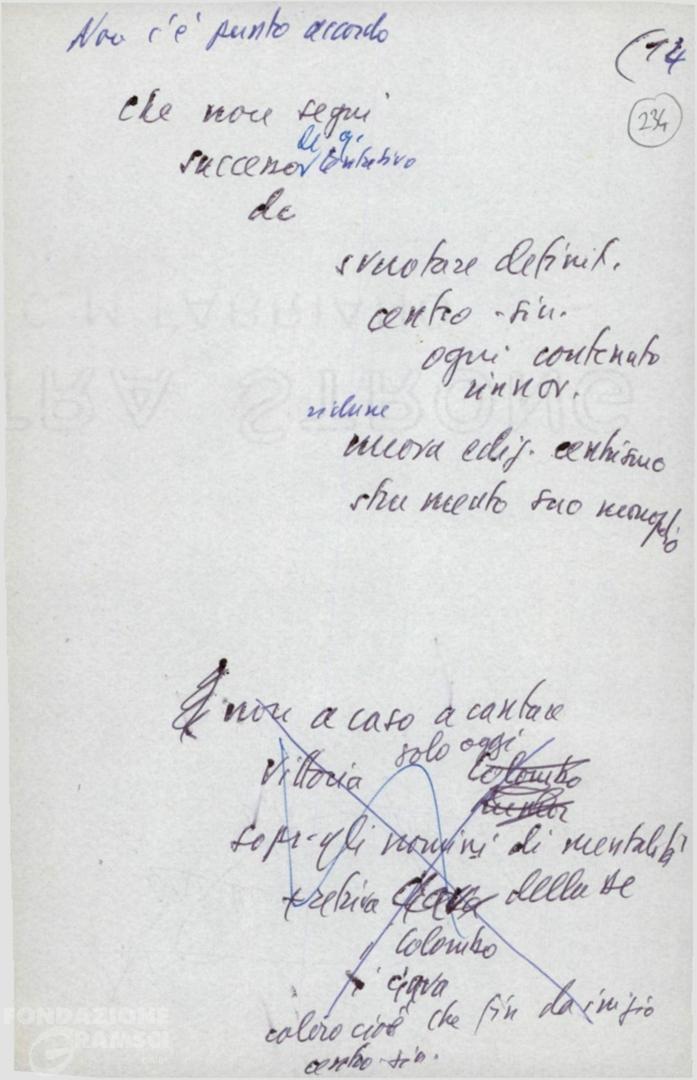 Non c'è punto accordo
(14
234
che non segni
di og.
successo tentativo
de
svuotare definit.
centro-sin.
ogni contenuto
rinnov.
ridurre
nuova ediz. centrismo
strumento suo monopolio
non a caso a cantare
solo oggi
vittoria Colombo
sopr. gli uomini di mentalità
retriva Gava della DC
i Colombo
i Gava
coloro cioè che fin da inizio
centro-sin.
FONDAZIONE
GRAMSCI